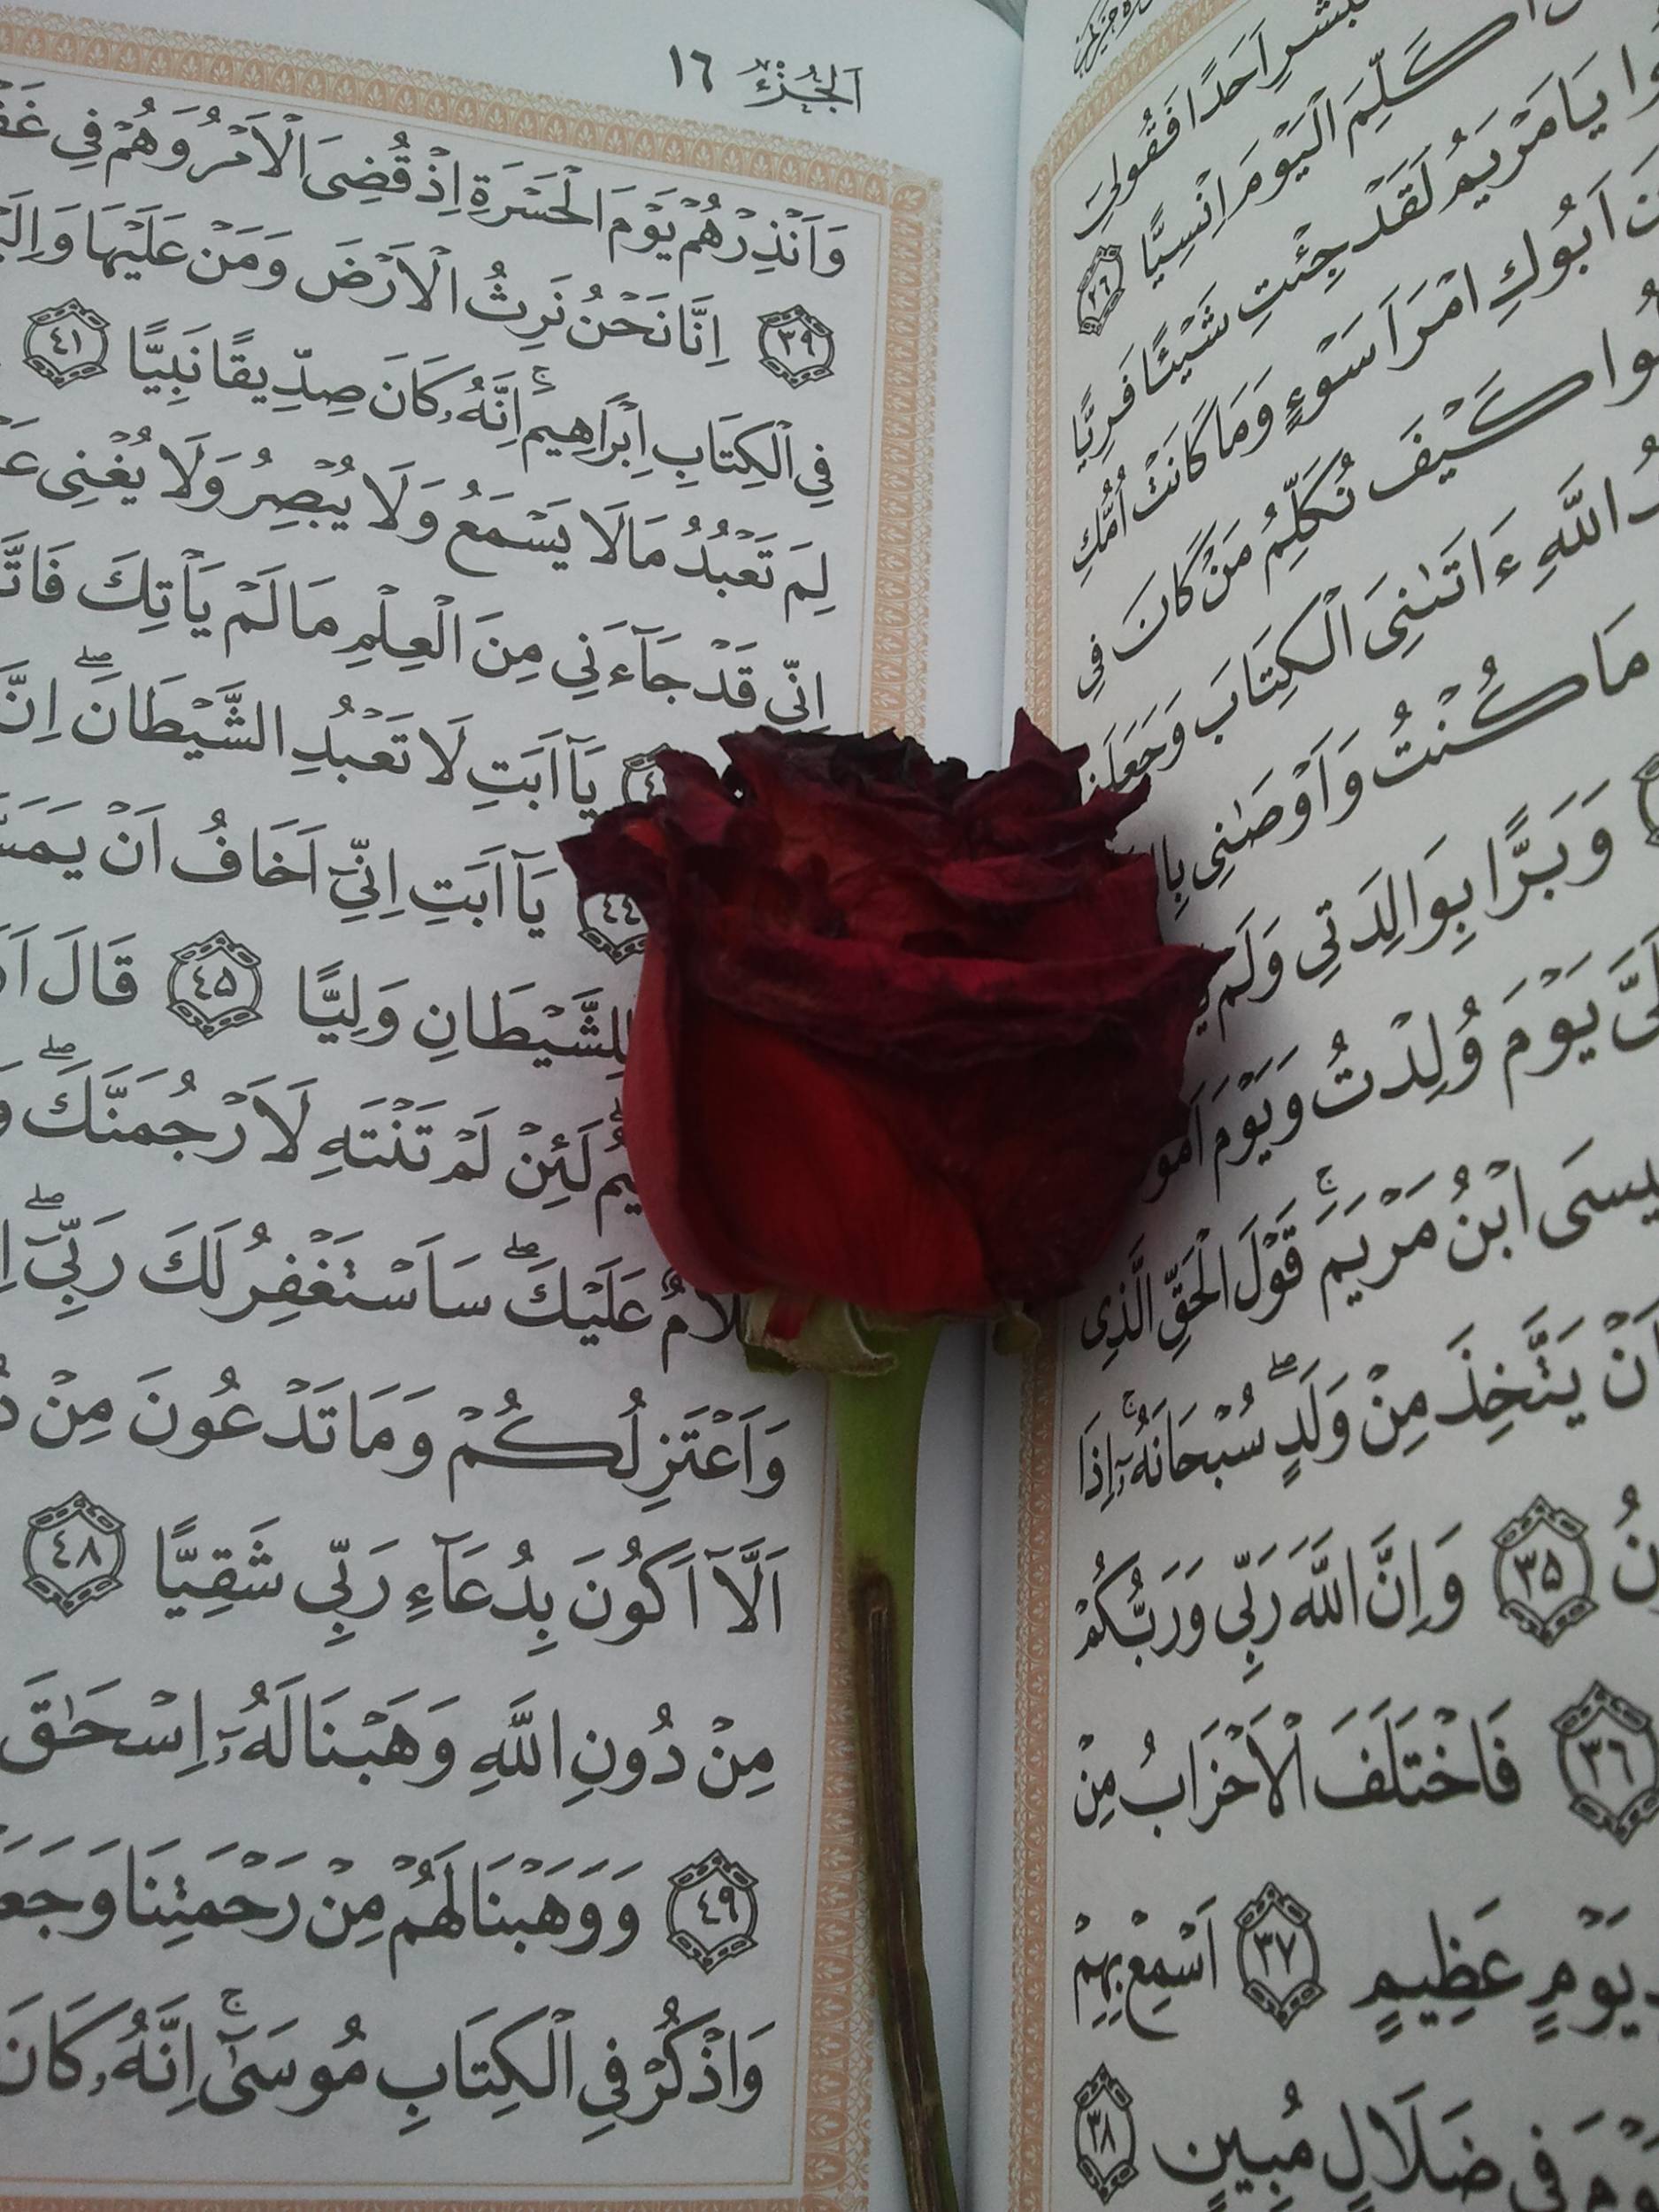 بَشَرِ اَحَدًا فَقُولِىٓ
كَلِّمَ الْيَوْمَ اِنْسِيًّا ٢٦
يَا مَرْيَمُ لَقَدْ جِئْتِ شَيْئًا فَرِيًّا
اَبُوكِ امْرَاَ سَوْءٍ وَمَا كَانَتْ اُمُّكِ
كَيْفَ نُكَلِّمُ مَنْ كَانَ فِي
اللّٰهِ ءَاتَىٰنِىَ الْكِتَابَ
مَا كُنْتُ وَاَوْصَىٰنِى
وَبَرًّا بِوَالِدَتِي وَلَمْ
يَوْمَ وُلِدْتُ وَيَوْمَ
ابْنُ مَرْيَمَ ۚ قَوْلَ الْحَقِّ الَّذِى
يَتَّخِذَ مِنْ وَلَدٍ ۖ سُبْحَانَهُٓ ۚ اِذَا
٣٥ وَاِنَّ اللّٰهَ رَبِّى وَرَبُّكُمْ
٣٦ فَاخْتَلَفَ الْاَحْزَابُ مِنْ
يَوْمٍ عَظِيمٍ ٣٧ اَسْمِعْ بِهِمْ
فِي ضَلَالٍ مُبِينٍ ٣٨
اَلْجُزْءُ ١٦
وَاَنْذِرْهُمْ يَوْمَ الْحَسْرَةِ اِذْ قُضِىَ الْاَمْرُ وَهُمْ فِي
٣٩ اِنَّا نَحْنُ نَرِثُ الْاَرْضَ وَمَنْ عَلَيْهَا
فِي الْكِتَابِ اِبْرَاهِيمَ ۚ اِنَّهُ كَانَ صِدِّيقًا نَبِيًّا ٤١
لِمَ تَعْبُدُ مَا لَا يَسْمَعُ وَلَا يُبْصِرُ وَلَا يُغْنِى
اِنِّي قَدْ جَآءَنِي مِنَ الْعِلْمِ مَا لَمْ يَاْتِكَ
يَآ اَبَتِ لَا تَعْبُدِ الشَّيْطَانَ ۖ اِنَّ
٤٤ يَآ اَبَتِ اِنِّىٓ اَخَافُ اَنْ
لِلشَّيْطَانِ وَلِيًّا ٤٥ قَالَ
لَئِنْ لَمْ تَنْتَهِ لَاَرْجُمَنَّكَ ۖ
عَلَيْكَ ۖ سَاَسْتَغْفِرُ لَكَ رَبِّىٓ ۖ
وَاَعْتَزِلُكُمْ وَمَا تَدْعُونَ مِنْ
اَلَّآ اَكُونَ بِدُعَآءِ رَبِّي شَقِيًّا ٤٨
مِنْ دُونِ اللّٰهِ وَهَبْنَا لَهُٓ اِسْحَٰقَ
٤٩ وَوَهَبْنَا لَهُمْ مِنْ رَحْمَتِنَا
وَاذْكُرْ فِي الْكِتَابِ مُوسَىٰٓ ۚ اِنَّهُ كَانَ